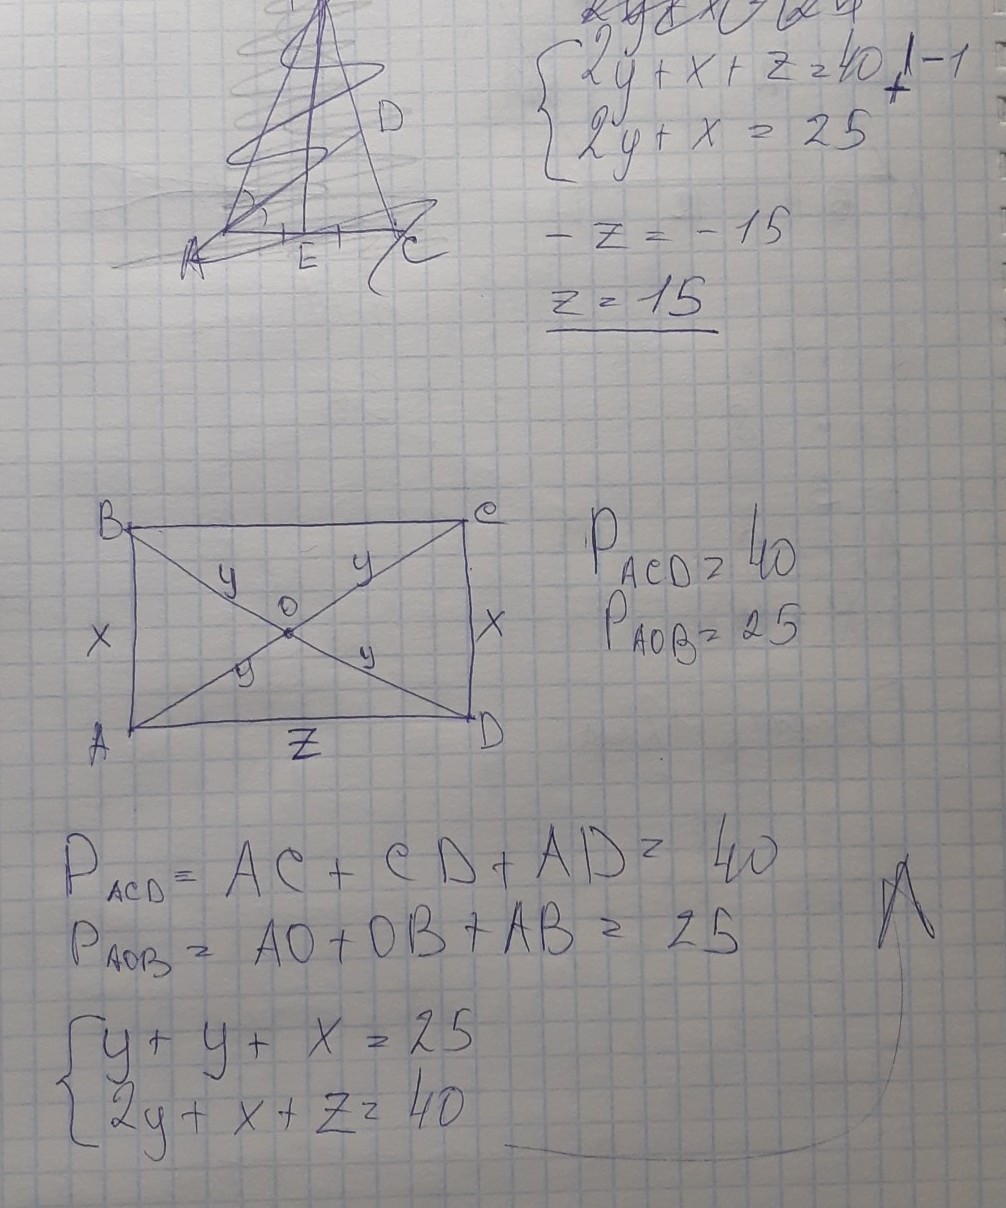 D
A E C
{ 2y + x + z = 40 | -1
+
2y + x = 25
- z = - 15
z = 15
B C
y y
O
x x
y y
A D
z
P ACD = 40
P AOB = 25
P ACD = AC + CD + AD = 40
P AOB = AO + OB + AB = 25
{ y + y + x = 25
2y + x + z = 40